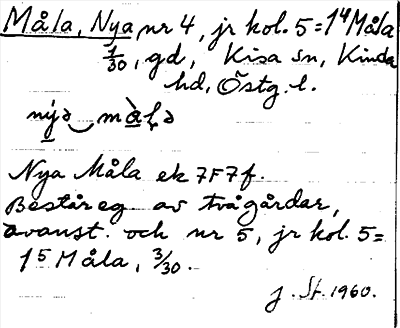 Måla, Nya nr 4, jr kol. 5 = 1⁴ Måla
1/30, gd, Kisa sn, Kinda
hd, Östg. l.
nýə‿màḷə
Nya Måla ek 7F7f.
Består eg av två gårdar,
avanst. och nr 5, jr kol. 5 =
1⁵ Måla, 3/30.
J. St. 1960.